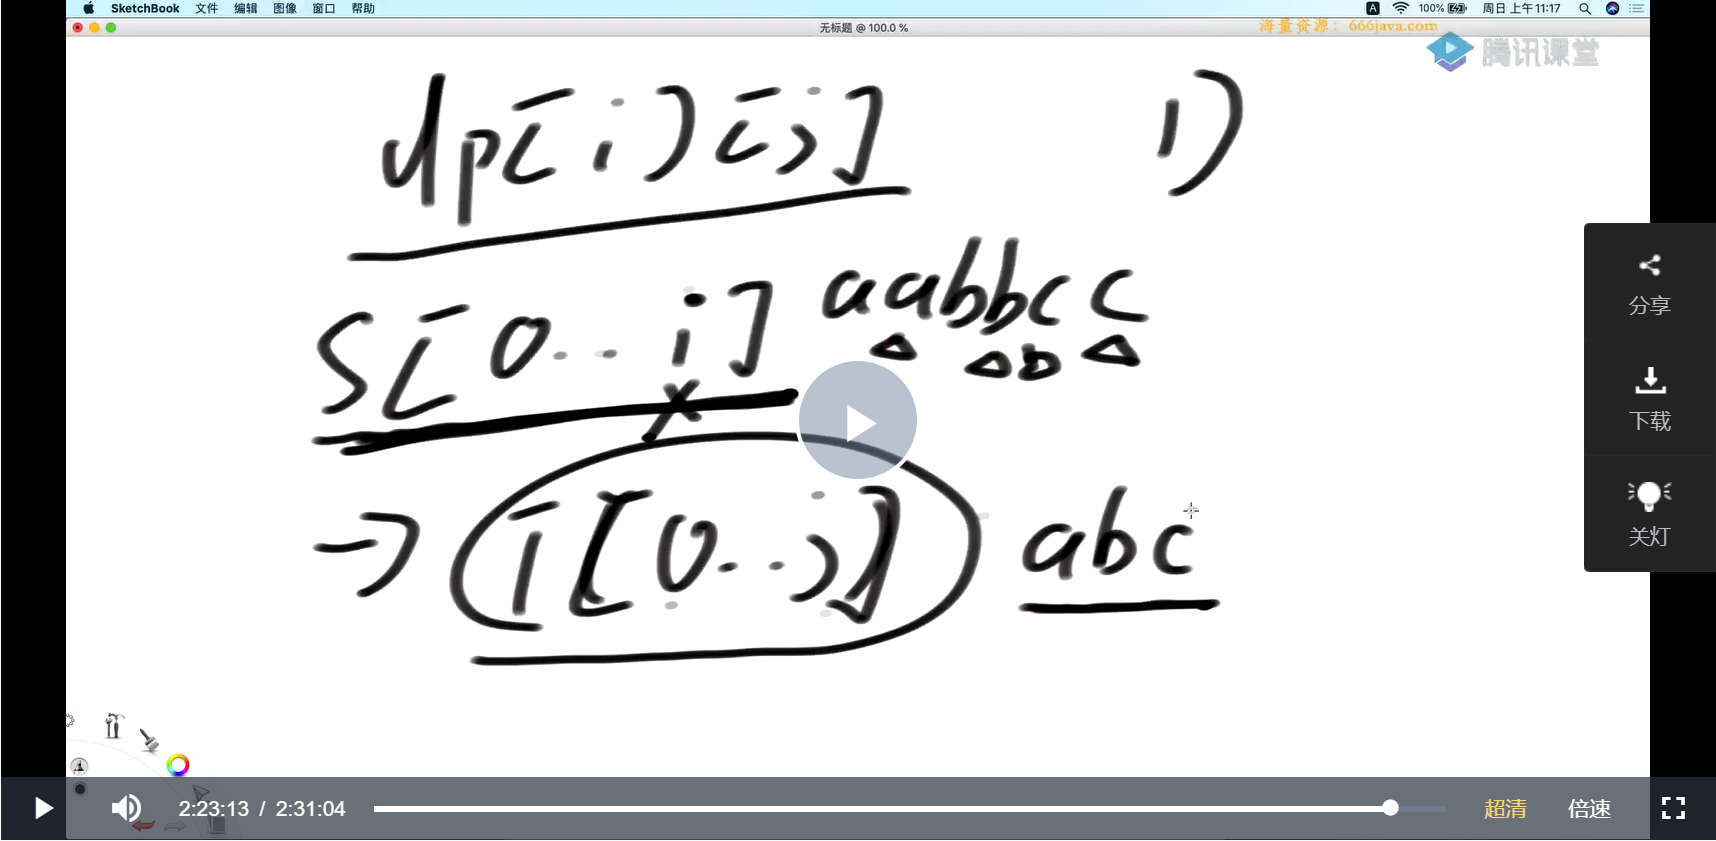 SketchBook 文件 编辑 图像 窗口 帮助 A 100% 周日 上午11:17
无标题 @ 100.0 %
海量资源：666java.com
腾讯课堂
dp[i][j] 1)
S[0..i] aabbcc
→ i[0..j] abc
分享
下载
关灯
2:23:13 / 2:31:04 超清 倍速